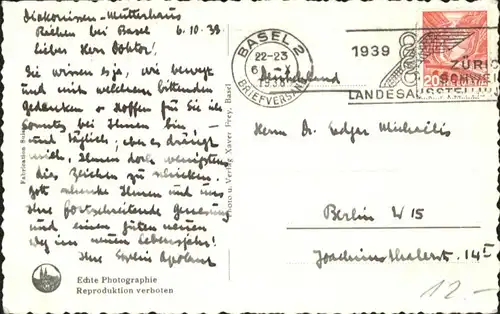 Diakonissen-Mutterhaus
Riehen bei Basel 6.10.38
Lieber Herr Doktor!
Sie wissen ja, wie bewegt
und mit welchem bittenden
Gedenken + Hoffen für Sie ich
bei Ihnen bin –
und täglich; aber es drängt
mich, Ihnen doch wenigstens
dies Zeichen zu schicken.
Gott schenke Ihnen und uns
Ihre fortschreitende Genesung
und einen guten neuen
Weg im neuen Lebensjahr!
Ihre
Echte Photographie
Reproduktion verboten
Fabrication
Photo u. Verlag Xaver Frey, Basel
BASEL 2
22-23
BRIEFVERSAND
1939
LANDESAUSSTELLUNG
20
Deutschland
Herrn Dr. Edgar Michaëlis
Berlin W 15
Joachimsthalerst. 14 I
12.-